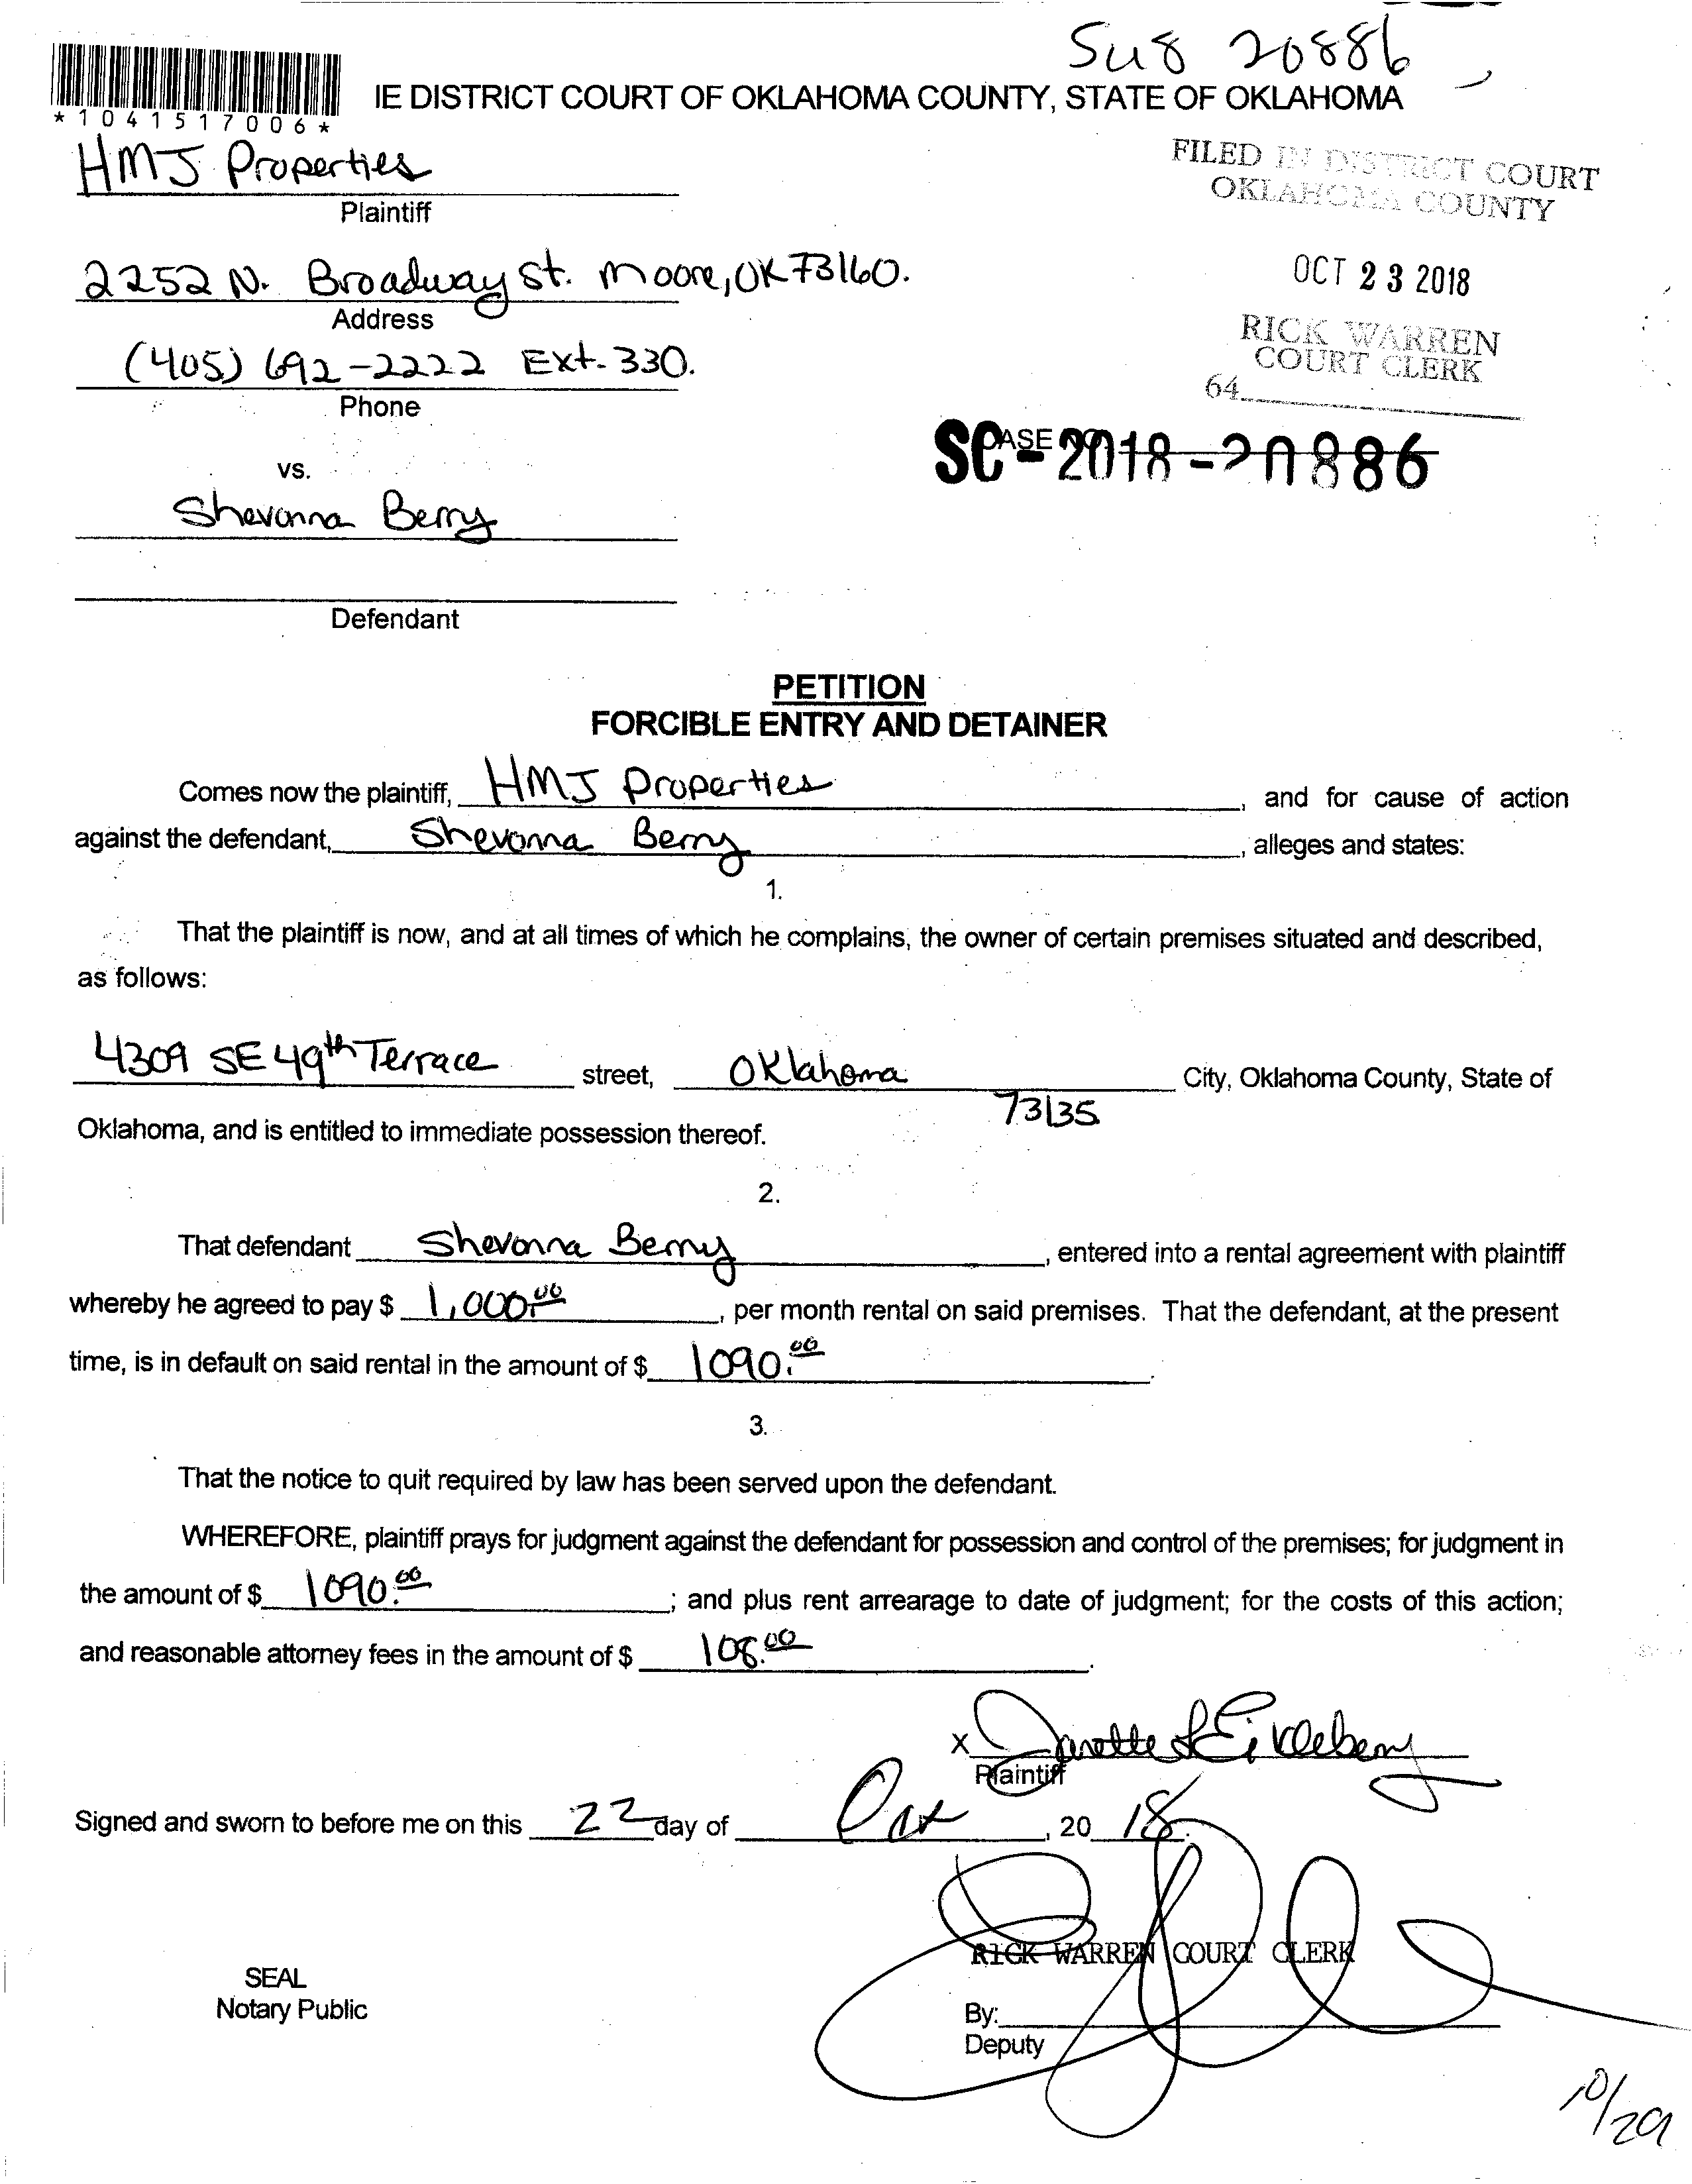 Su8 20886
*1041517006*
IE DISTRICT COURT OF OKLAHOMA COUNTY, STATE OF OKLAHOMA
HMJ Properties
Plaintiff
FILED IN DISTRICT COURT
OKLAHOMA COUNTY
2252 N. Broadway St. Moore, OK 73160.
Address
OCT 23 2018
(405) 692-2222 Ext. 330.
Phone
RICK WARREN
COURT CLERK
64
SC-2018-20886
vs.
Shevonna Berry
Defendant
PETITION
FORCIBLE ENTRY AND DETAINER
Comes now the plaintiff, HMJ Properties, and for cause of action
against the defendant, Shevonna Berry, alleges and states:
1.
That the plaintiff is now, and at all times of which he complains, the owner of certain premises situated and described,
as follows:
4309 SE 49th Terrace street, Oklahoma City, Oklahoma County, State of
73135
Oklahoma, and is entitled to immediate possession thereof.
2.
That defendant Shevonna Berry, entered into a rental agreement with plaintiff
whereby he agreed to pay $ 1,000.00, per month rental on said premises. That the defendant, at the present
time, is in default on said rental in the amount of $ 1090.00.
3.
That the notice to quit required by law has been served upon the defendant.
WHEREFORE, plaintiff prays for judgment against the defendant for possession and control of the premises; for judgment in
the amount of $ 1090.00; and plus rent arrearage to date of judgment; for the costs of this action;
and reasonable attorney fees in the amount of $ 108.00.
x Janette L Eikleberry
Plaintiff
Signed and sworn to before me on this 22 day of Oct, 2018.
RICK WARREN COURT CLERK
SEAL
Notary Public
By:
Deputy
10/29